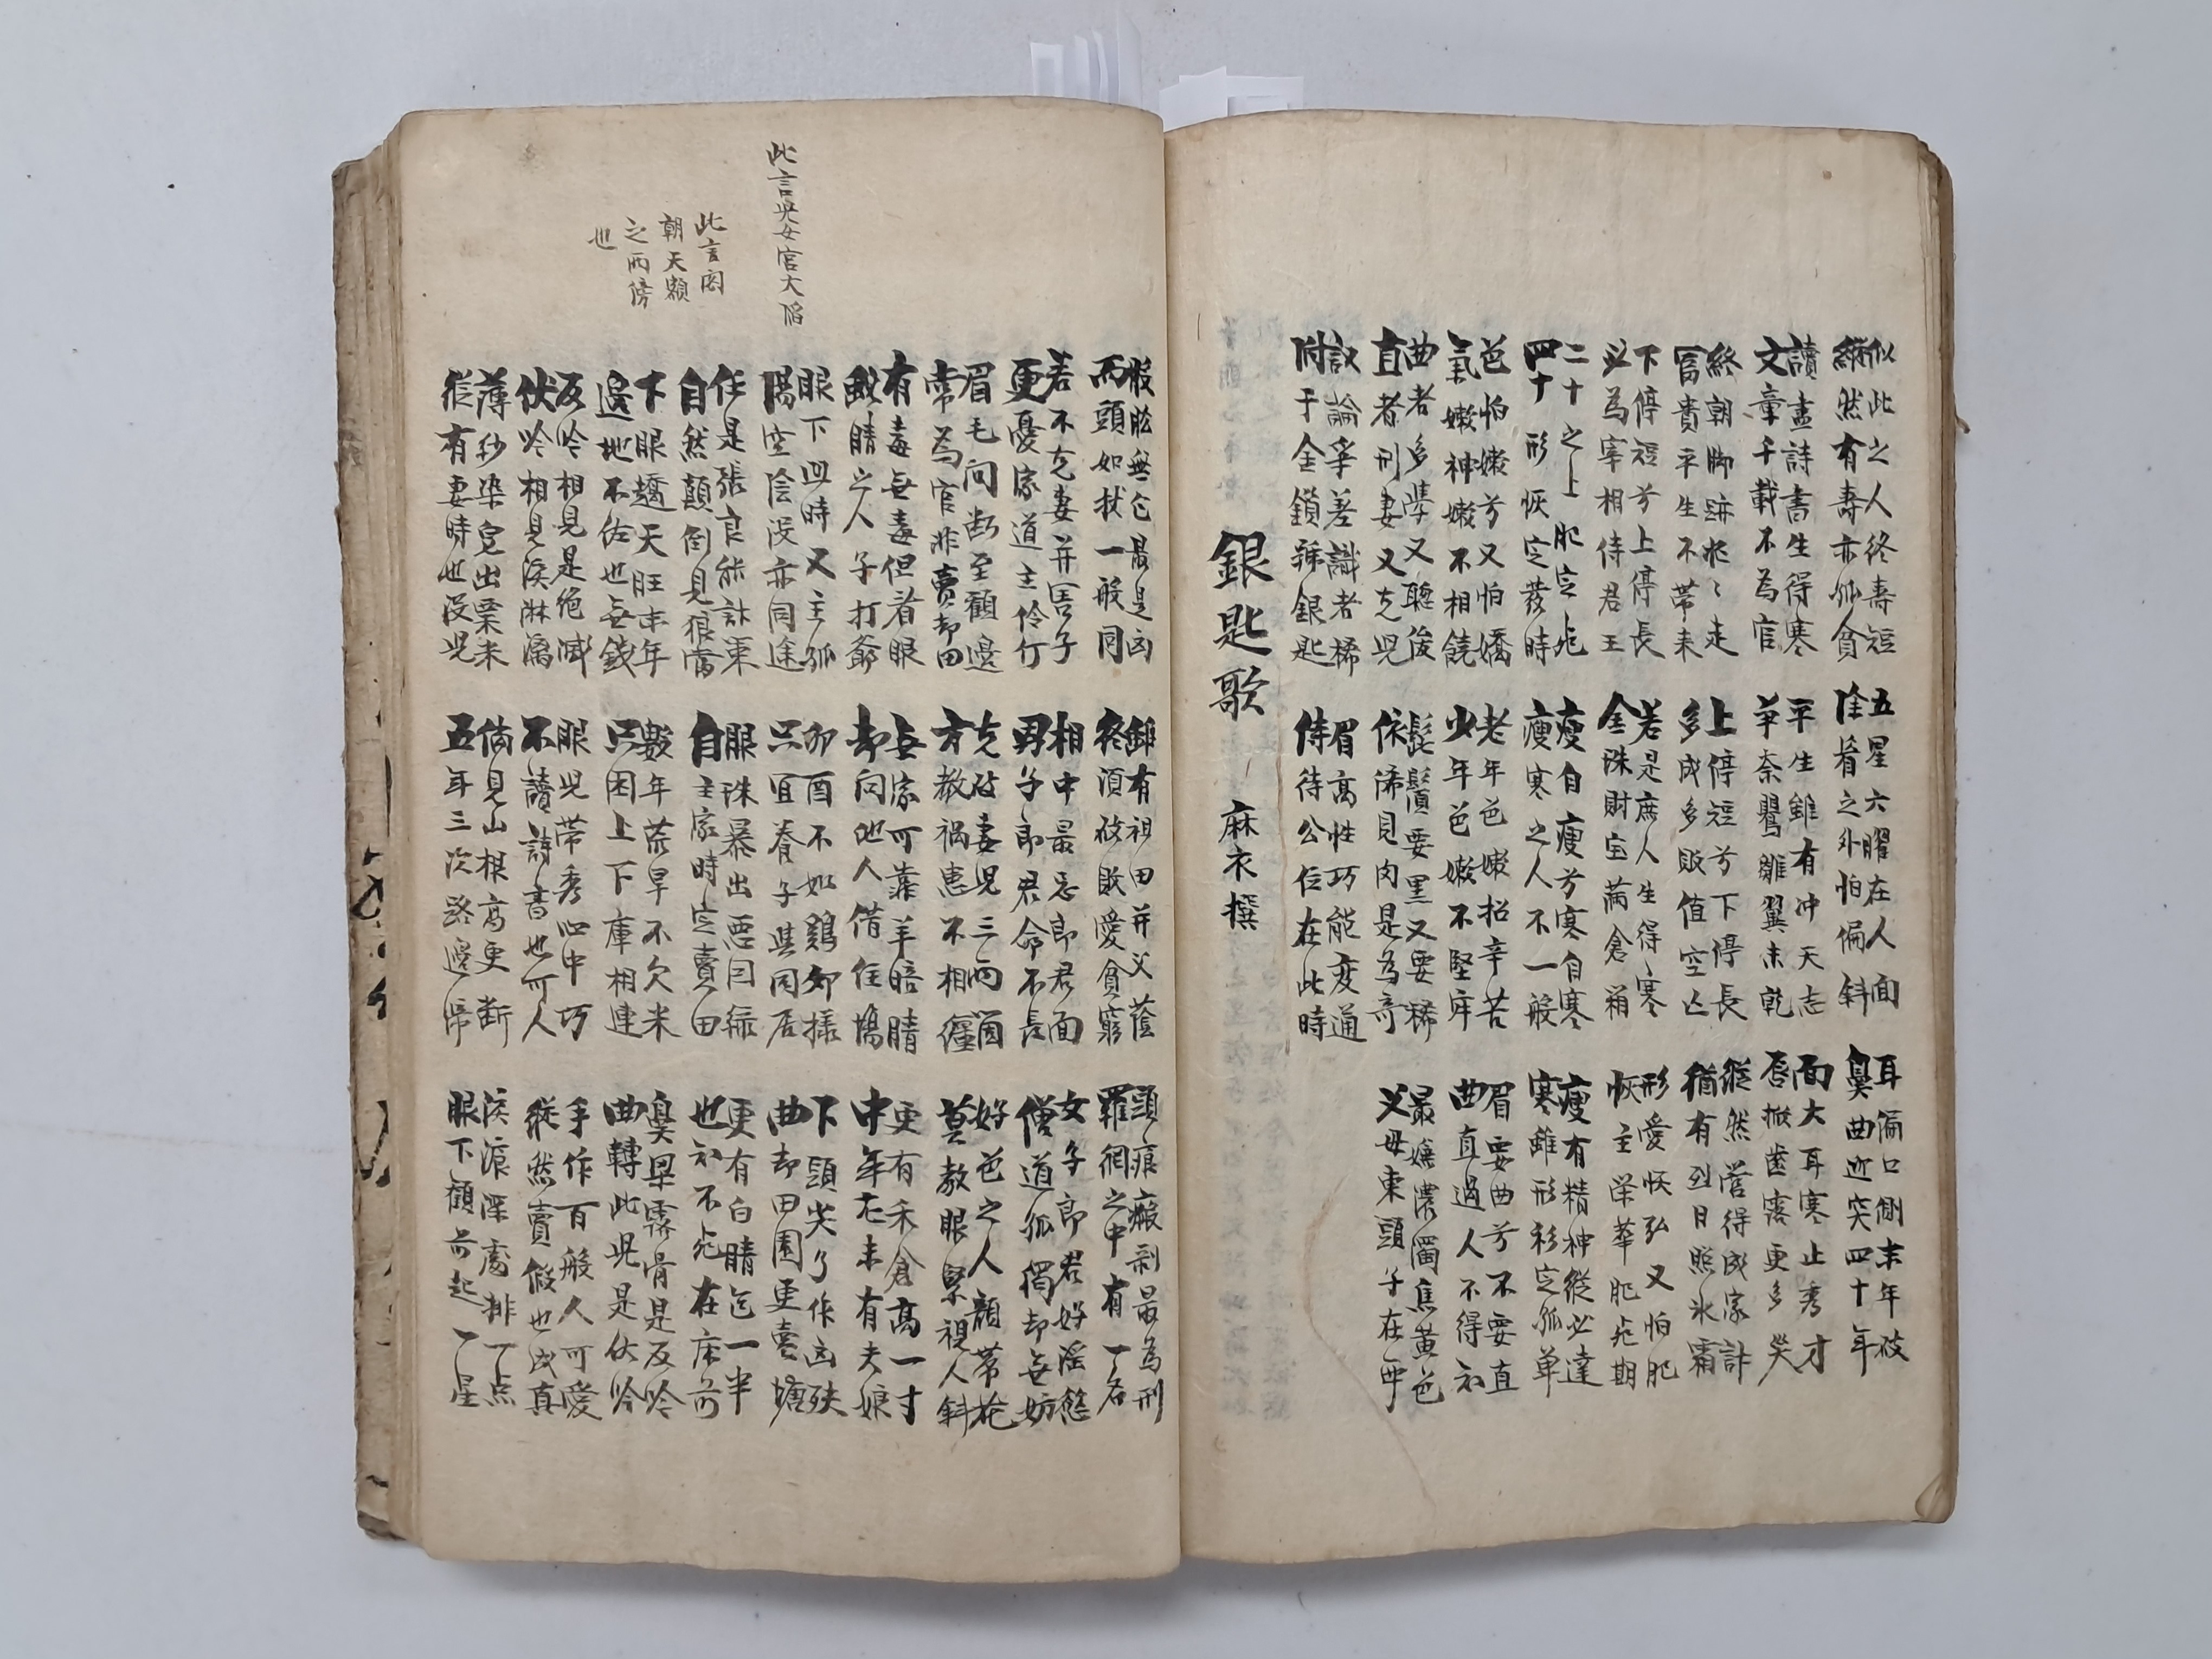 似此之人終壽短
縱然有壽亦孤貧
五星六曜在人面
除眉之外怕偏斜
耳偏口側末年破
鼻曲迍突四十年
讀盡詩書生得寒
文章千載不為官
平生雖有冲天志
爭奈鸎雛翼未乾
面大耳寒止秀才
唇掀齒露更多災
終朝脚跡忙々走
冨貴平生不帶来
上停短兮下停長
多成多敗值空亡
縱然営得成家計
猶有烈日照氷霜
下停短兮上停長
必為宰相侍君王
若是庶人生得寒
金珠財宝滿倉箱
形愛恢弘又怕肥
恢主榮華肥死期
二十之上肥定死
四十形恢定發時
瘦自瘦兮寒自寒
瘦寒之人不一般
瘦有精神縱必達
寒雖形彩定孤单
色怕嫩兮又怕嬌
氣嫩神嫩不相饒
老年色嫩招辛苦
少年色嫩不堅牢
眉要曲兮不要直
曲直過人不得知
曲者多學又聰俊
直者刑妻又克児
髭鬚要黒又要稀
依俙見肉是為奇
最嫌濃濁焦黃色
父母東頭子在西
議論爭差識者稀
附于金鎖号銀匙
眉高性巧能変通
侍待公位在此時
銀匙歌　麻衣撰
股肱無包最是凶
两頭如杖一般同
雖有祖田并父蔭
終須破敗愛貧窮
頭痕瘢剎最為刑
羅網之中有一名
若不克妻并害子
更憂家道主伶仃
相中最忌郎君面
男子郎君命不長
女子郎君好淫慾
僧道孤獨却無妨
眉毛间断至顴邉
常為官非賣却田
克破妻児三両個
方教禍患不相纏
好色之人顔带花
莫教眼緊視人斜
有毒無毒但看眼
蛇睛之人子打爺
無家可靠羊睛暗
却问他人借住塲
更有禾倉高一寸
中年无未有夫娘
眼下凹時又主孤
陽空陰没亦同途
卯酉不如鷄卵様
只宜養子與同居
下頭尖了作凶殃
曲却田園更賣塘
任是張良能計策
自然顛倒見狼當
眼珠暴出惡因緣
自主家時定賣田
更有白睛包一半
也知不死在床前
下眼趫天旺末年
邉地不佐也無錢
數年荒旱不欠米
只因上下庫相連
鼻梁露骨是反吟
曲轉此児是伏吟
反吟相見是绝滅
伏吟相見淚淋漓
眼児带秀心中巧
不讀詩書也可人
手作百般人可愛
縱然賣假也成真
薄紗染皂出粟米
縱有妻時也沒児
倘見山根高更断
五年三次路邉啼
淚痕深處排一点
眼下顴前起一星
此言男女官大陷
此言閣
朝天顴
之両傍
也